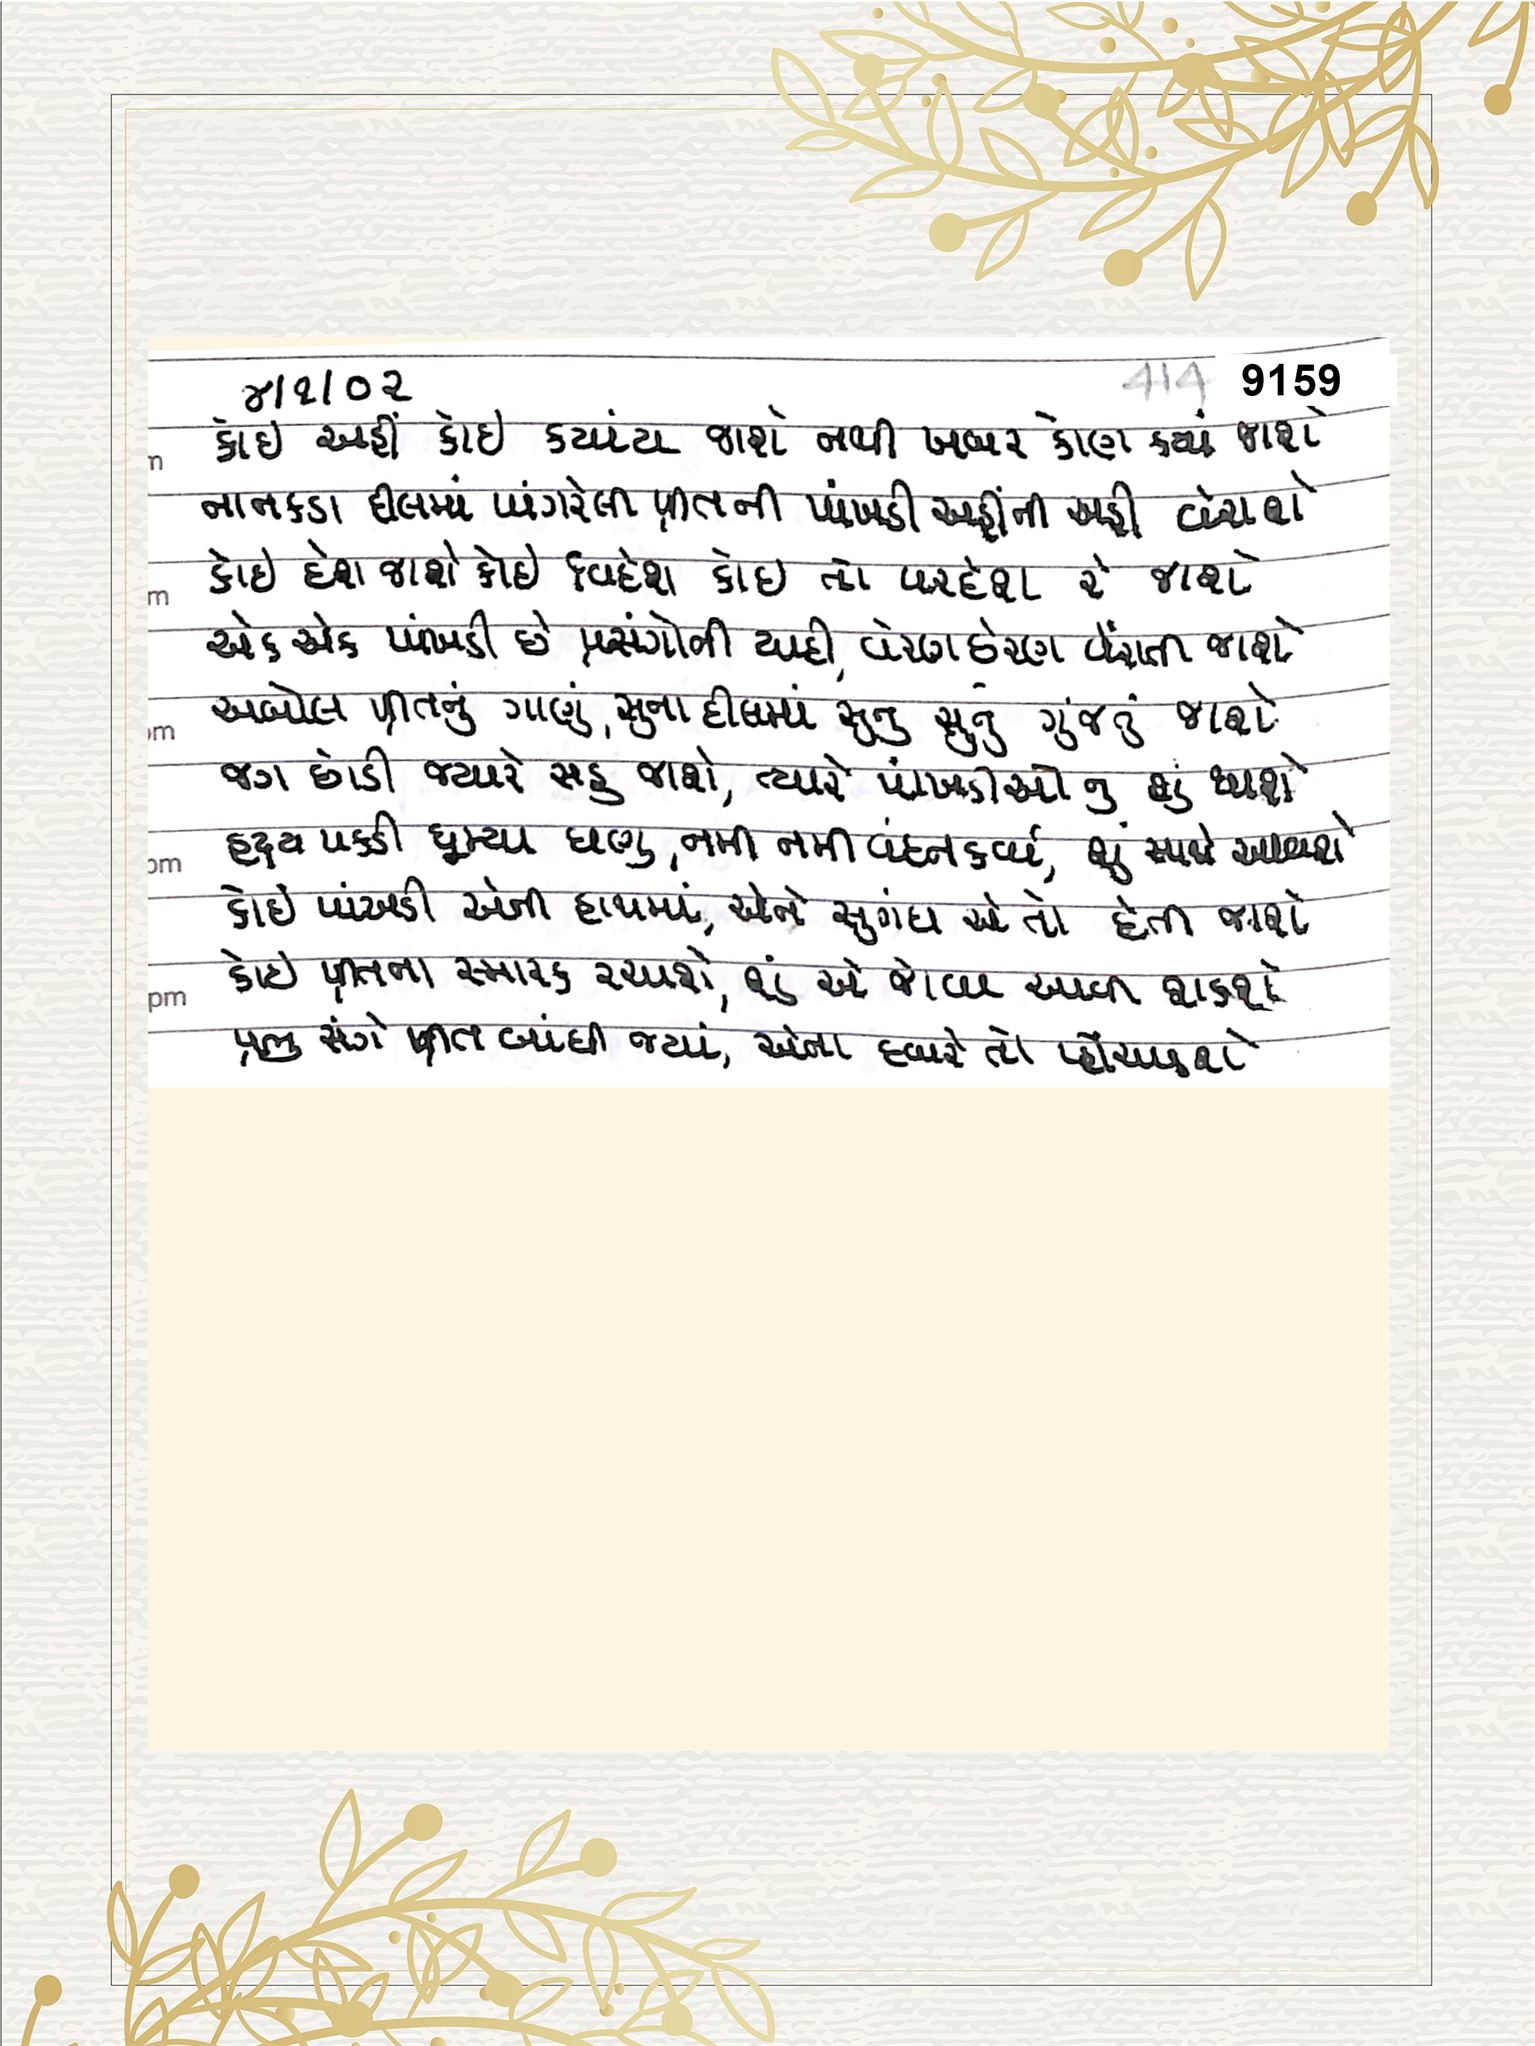 ૪/૧/૦૨ 414 9159
કોઇ અહીં કોઇ કયાંય જાશે નથી ખબર કોણ કયાં જાશે
નાનકડા દીલમાં પાંગરેલી પ્રીતની પાંખડી અહીંની અહી વેરાશે
કોઇ દેશ જાશે કોઇ વિદેશ કોઇ તો પરદેશ રે જાશે
એક એક પાંખડી છે પ્રસંગોની યાદી, વેરણછેરણ વેરાતી જાશે
અબોલ પ્રીતનું ગાણું, સુના દીલમાં સુનુ સુનુ ગુંજતું જાશે
જગ છોડી જ્યારે સહુ જાશે, ત્યારે પાંખડીઓ નુ શું થાશે
હૃદય પકડી ઘૂમ્યા ઘણુ, નમી નમી વંદન કર્યા, શું સાથે આવશે
કોઇ પાંખડી એની હાથમાં, એને સુગંધ એ તો દેતી જાશે
કોઇ પ્રીતના સ્મારક રચાશે, શું એ જોવા આવી શકશે
પ્રભુ સંગે પ્રીત બાંધી જ્યાં, એના દ્વારે તો પ્હોંચાડશે
m
m
pm
pm
pm